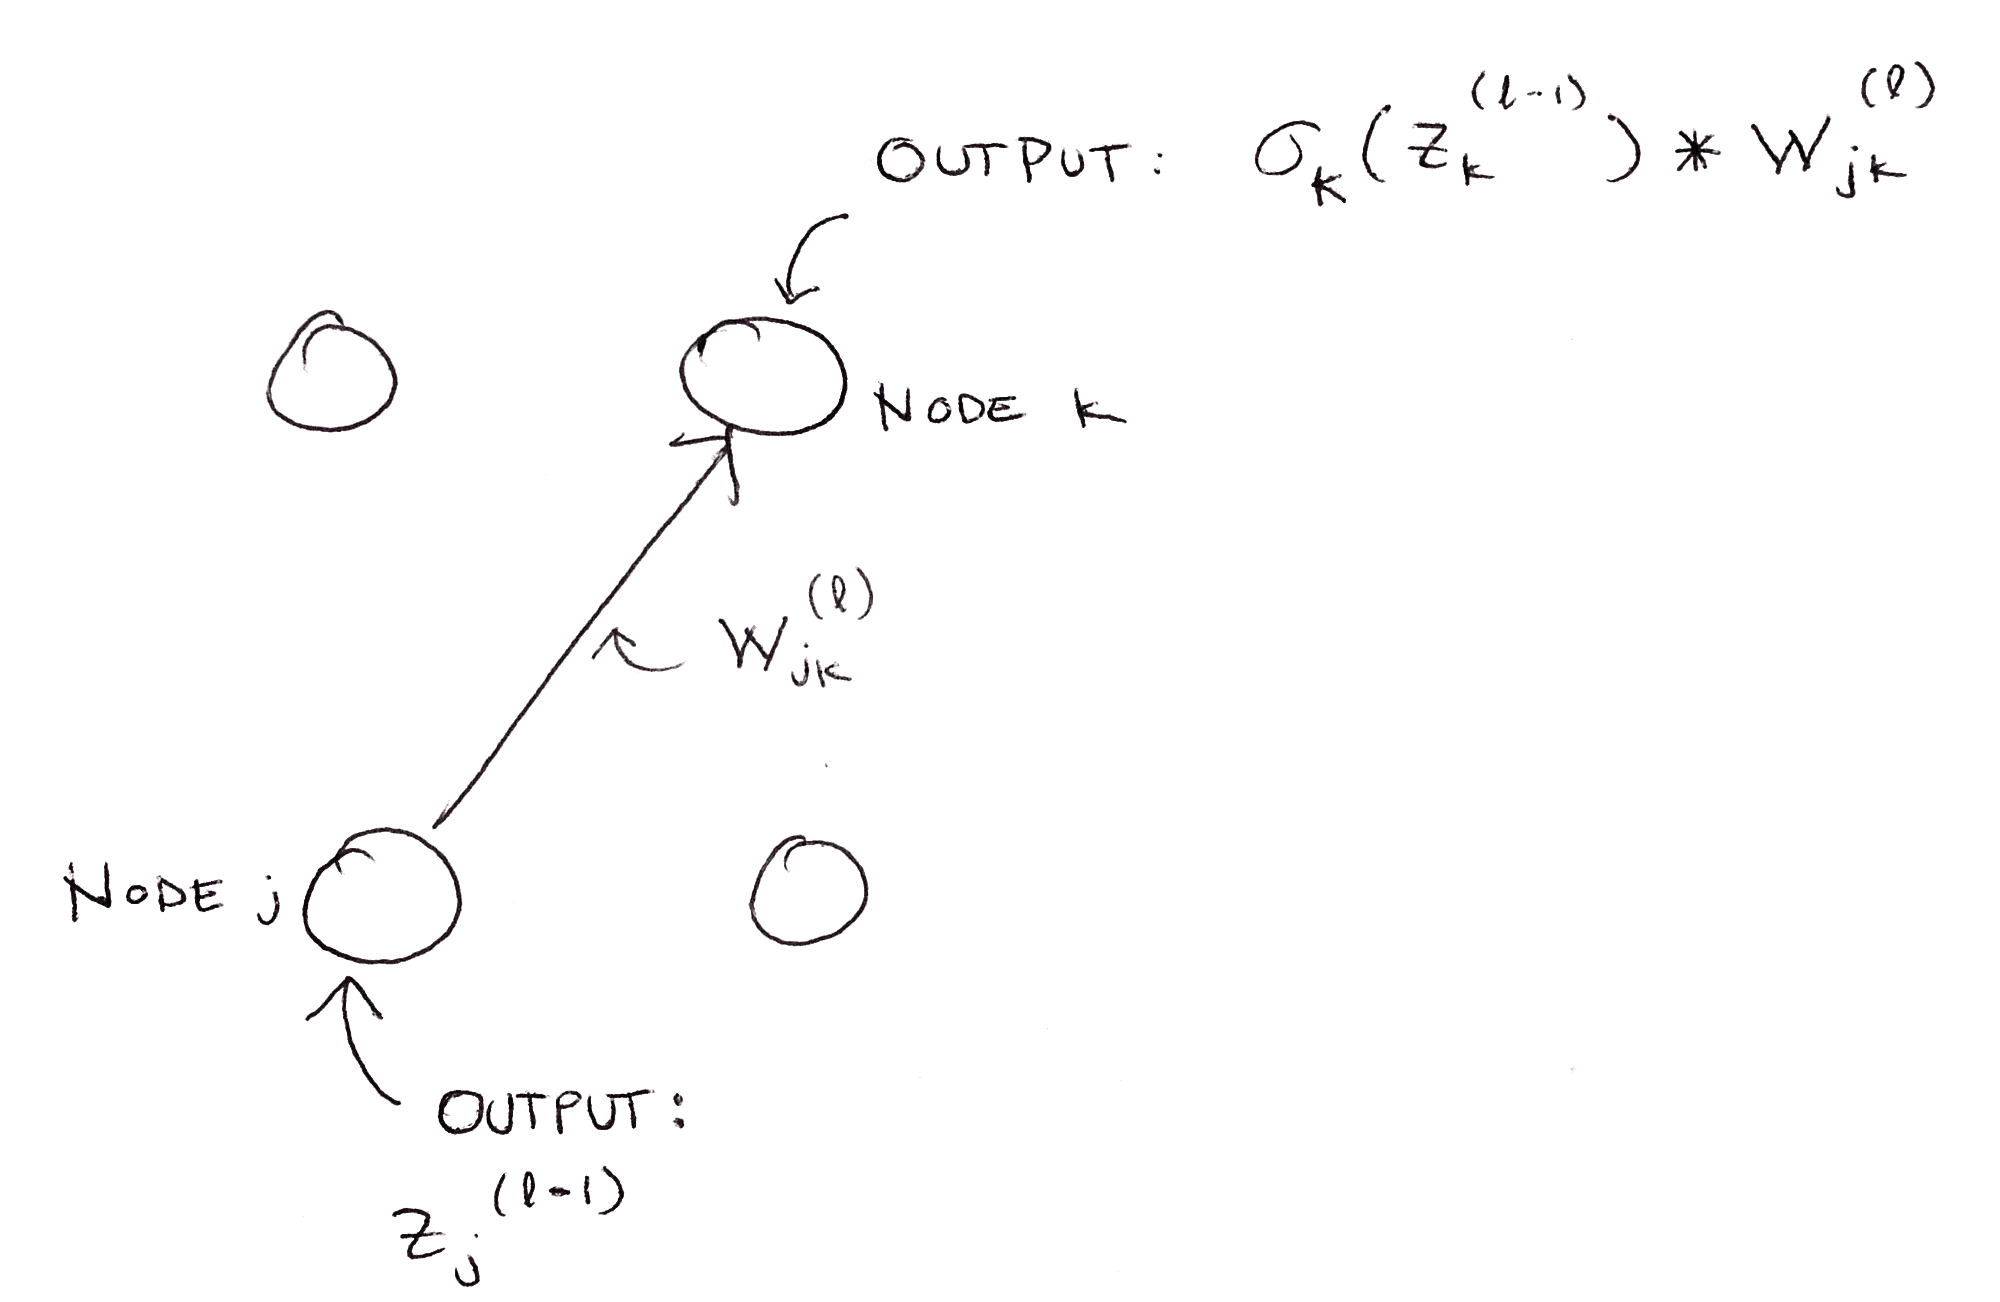 OUTPUT: σₖ(zₖ⁽ˡ⁻¹⁾) * Wⱼₖ⁽ˡ⁾
NODE k
Wⱼₖ⁽ˡ⁾
NODE j
OUTPUT:
zⱼ⁽ˡ⁻¹⁾